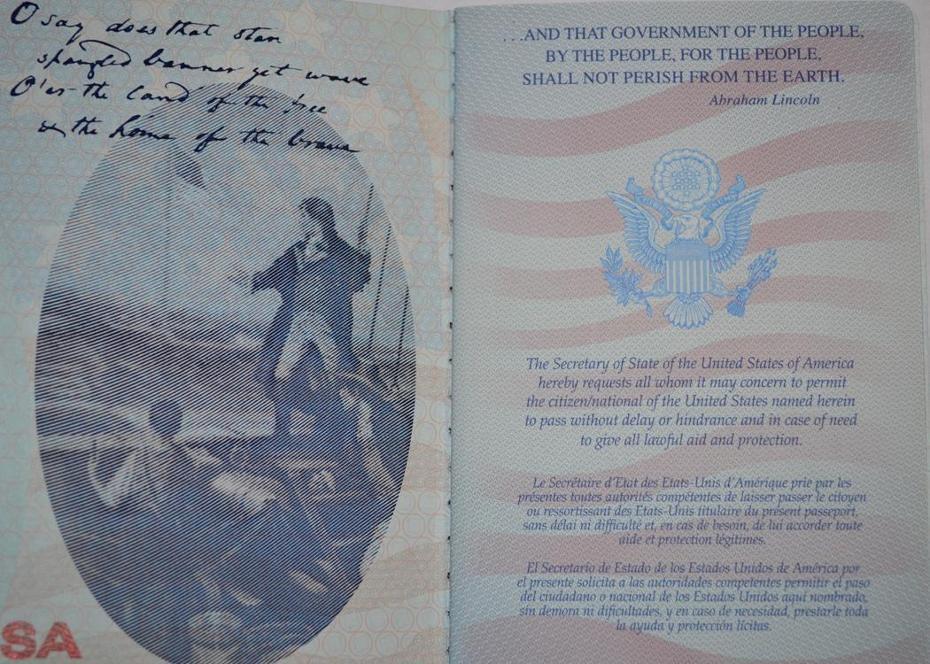 O say does that star
spangled banner yet wave
O'er the land of the free
& the home of the brave
SA
. . .AND THAT GOVERNMENT OF THE PEOPLE,
BY THE PEOPLE, FOR THE PEOPLE,
SHALL NOT PERISH FROM THE EARTH.
Abraham Lincoln
The Secretary of State of the United States of America
hereby requests all whom it may concern to permit
the citizen/national of the United States named herein
to pass without delay or hindrance and in case of need
to give all lawful aid and protection.
Le Secrétaire d'Etat des Etats-Unis d'Amérique prie par les
présentes toutes autorités compétentes de laisser passer le citoyen
ou ressortissant des Etats-Unis titulaire du présent passeport,
sans délai ni difficulté et, en cas de besoin, de lui accorder toute
aide et protection légitimes.
El Secretario de Estado de los Estados Unidos de América por
el presente solicita a las autoridades competentes permitir el paso
del ciudadano o nacional de los Estados Unidos aquí nombrado,
sin demora ni dificultades, y en caso de necesidad, prestarle toda
la ayuda y protección lícitas.